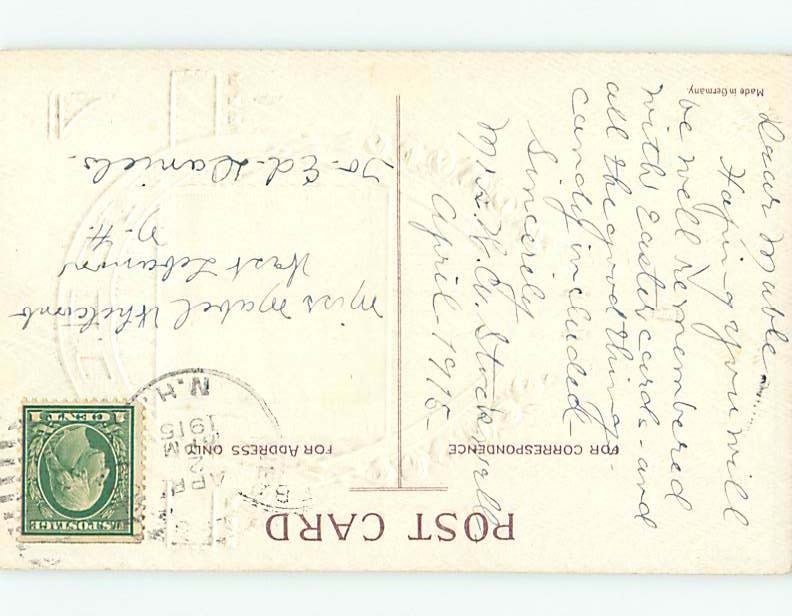 POST CARD
FOR CORRESPONDENCE
FOR ADDRESS ONLY
Made in Germany
Dear Mable
Hoping you will
be well remembered
with Easter cards - and
all the good things -
candy included -
Sincerely
Mrs. W. A. Stockwell
April - 1915 -
U.S. POSTAGE
1 CENT 1
APR
3
PM
1915
N.H.
Miss Mabel Whitcomb
West Lebanon
N. H.
To - Ed - Daniels.